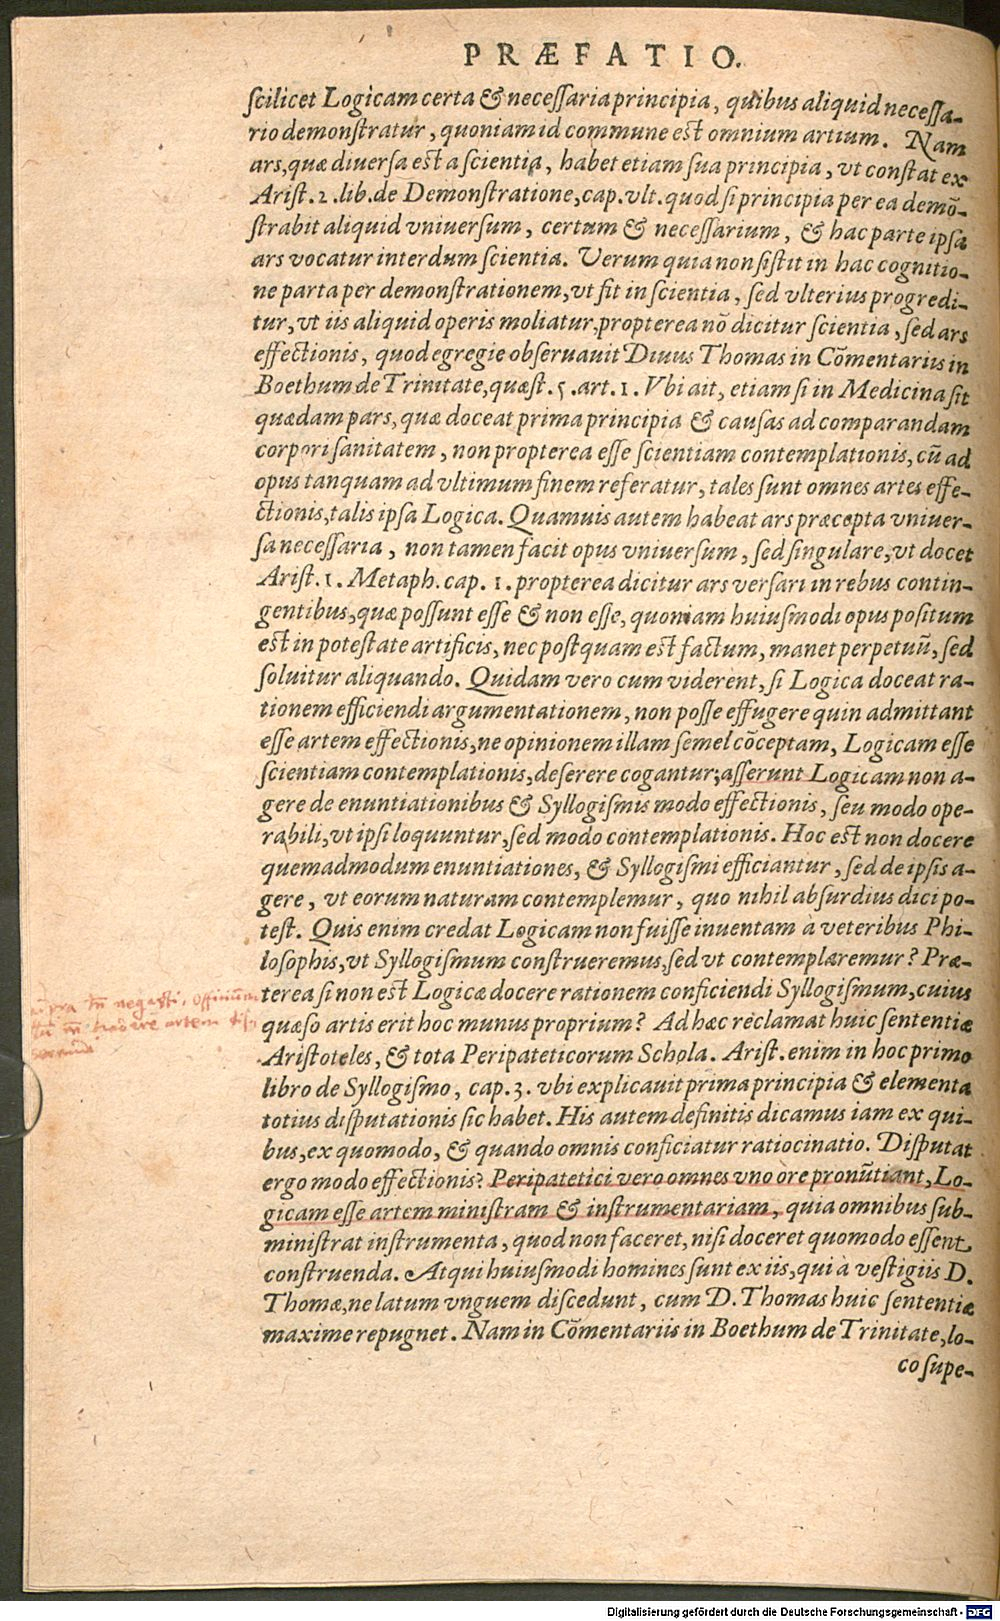 PRÆFATIO.
ſcilicet Logicam certa & neceſſaria principia, quibus aliquid neceſſa-
rio demonſtratur, quoniam id commune est omnium artium. Nam
ars, quæ diuerſa est a ſcientia, habet etiam ſua principia, vt conſtat ex
Ariſt. 2. lib. de Demonſtratione, cap. vlt. quod ſi principia per ea demõ-
ſtrabit aliquid vniuerſum, certum & neceſſarium, & hac parte ipſa
ars vocatur interdum ſcientia. Verum quia non ſiſtit in hac cognitio-
ne parta per demonſtrationem, vt fit in ſcientia, ſed vlterius progredi-
tur, vt iis aliquid operis moliatur, propterea nõ dicitur ſcientia, ſed ars
effectionis, quod egregie obſeruauit Diuus Thomas in Cõmentariis in
Boethum de Trinitate, quæſt. 5. art. 1. Vbi ait, etiam ſi in Medicina ſit
quædam pars, quæ doceat prima principia & cauſas ad comparandam
corpori ſanitatem, non propterea eſſe ſcientiam contemplationis, cũ ad
opus tanquam ad vltimum finem referatur, tales ſunt omnes artes effe-
ctionis, talis ipſa Logica. Quamuis autem habeat ars præcepta vniuer-
ſa neceſſaria, non tamen facit opus vniuerſum, ſed ſingulare, vt docet
Ariſt. 1. Metaph. cap. 1. propterea dicitur ars verſari in rebus contin-
gentibus, quæ poſſunt eſſe & non eſſe, quoniam huiuſmodi opus poſitum
est in poteſtate artificis, nec poſtquam est factum, manet perpetuũ, ſed
ſoluitur aliquando. Quidam vero cum viderent, ſi Logica doceat ra-
tionem efficiendi argumentationem, non poſſe effugere quin admittant
eſſe artem effectionis, ne opinionem illam ſemel cõceptam, Logicam eſſe
ſcientiam contemplationis, deſerere cogantur; aſſerunt Logicam non a-
gere de enuntiationibus & Syllogiſmis modo effectionis, ſeu modo ope-
rabili, vt ipſi loquuntur, ſed modo contemplationis. Hoc est non docere
quemadmodum enuntiationes, & Syllogiſmi efficiantur, ſed de ipſis a-
gere, vt eorum naturam contemplemur, quo nihil abſurdius dici po-
test. Quis enim credat Logicam non fuiſſe inuentam à veteribus Phi-
loſophis, vt Syllogiſmum conſtrueremus, ſed vt contemplaremur? Præ-
terea ſi non est Logicæ docere rationem conficiendi Syllogiſmum, cuius
quæſo artis erit hoc munus proprium? Ad hæc reclamat huic ſententiæ
Ariſtoteles, & tota Peripateticorum Schola. Ariſt. enim in hoc primo
libro de Syllogiſmo, cap. 3. vbi explicauit prima principia & elementa
totius diſputationis ſic habet. His autem definitis dicamus iam ex qui-
bus, ex quomodo, & quando omnis conficiatur ratiocinatio. Diſputat
ergo modo effectionis? Peripatetici vero omnes vno ore pronũtiant, Lo-
gicam eſſe artem miniſtram & inſtrumentariam, quia omnibus ſub-
miniſtrat inſtrumenta, quod non faceret, niſi doceret quomodo eſſent
conſtruenda. Atqui huiuſmodi homines ſunt ex iis, qui à veſtigiis D.
Thomæ, ne latum vnguem diſcedunt, cum D. Thomas huic ſententiæ
maxime repugnet. Nam in Cõmentariis in Boethum de Trinitate, lo-
co ſupe-
negasti
artem
Digitalisierung gefördert durch die Deutsche Forschungsgemeinschaft - DFG